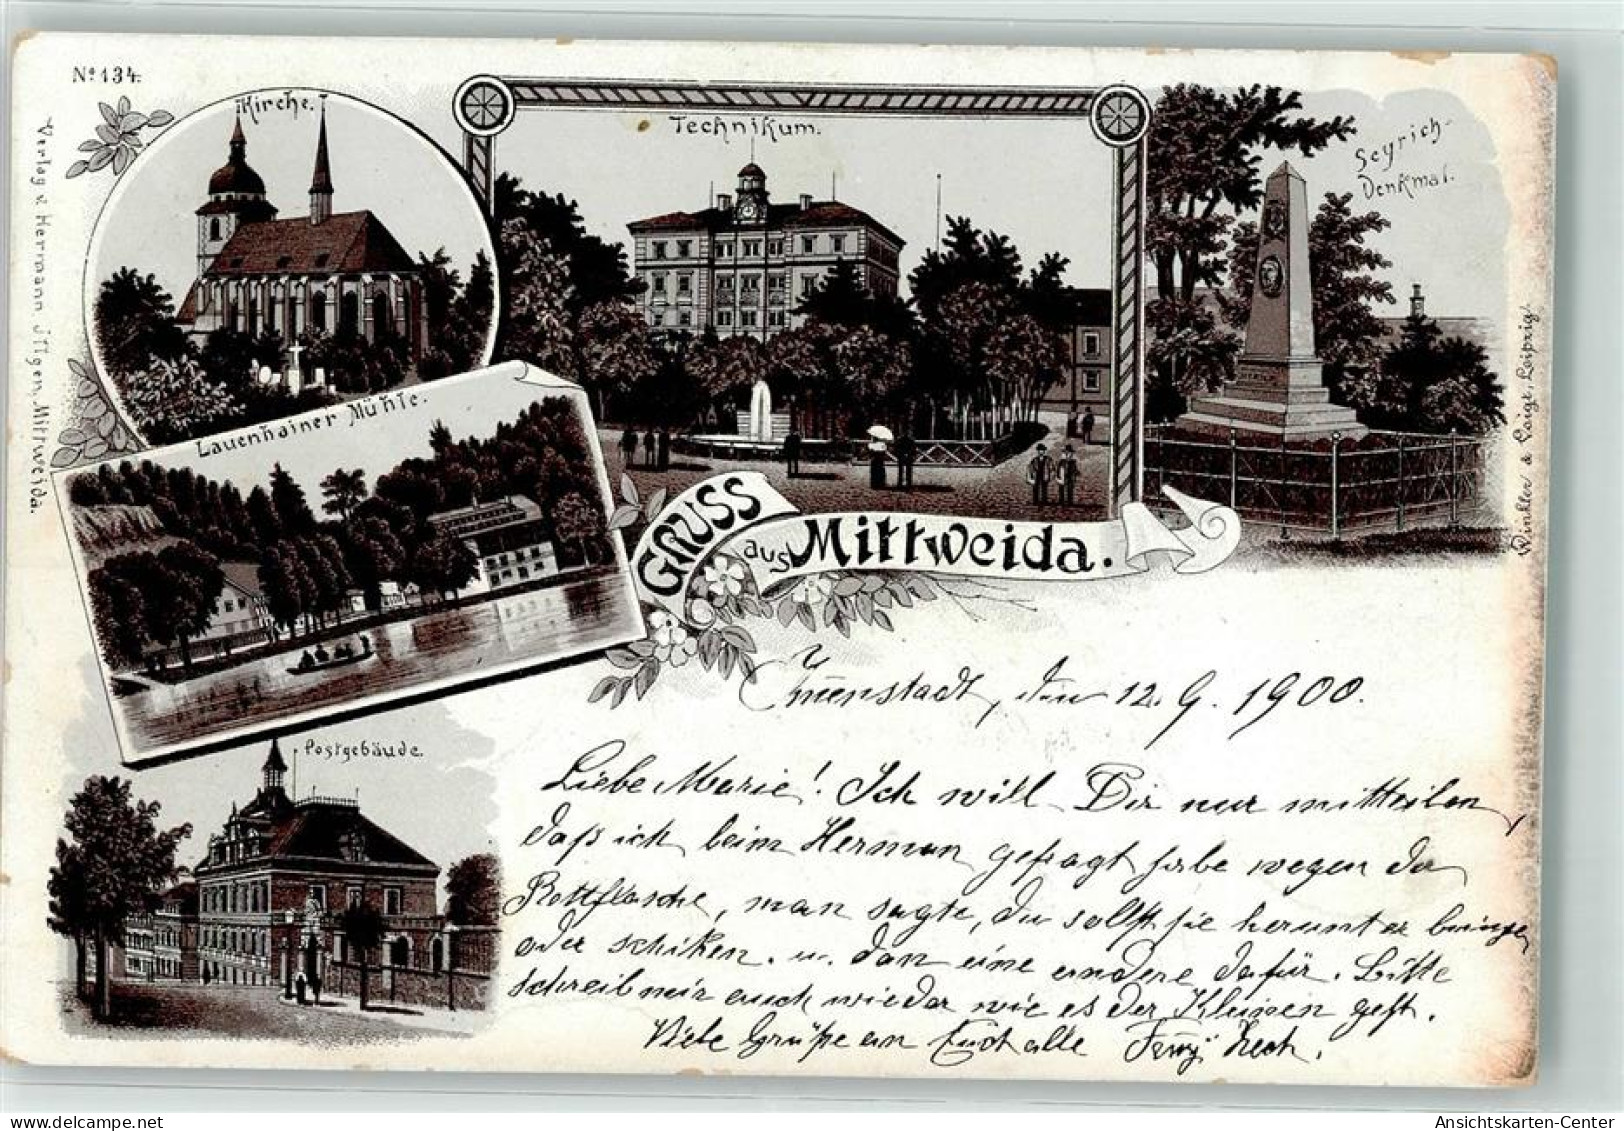 Nº 134.
Kirche.
Technikum.
Seyrich-
Denkmal.
Lauenhainer Mühle.
Gruss
aus Mittweida.
Postgebäude.
Verlag v. Hermann Illgen, Mittweida.
Winkler & Voigt, Leipzig.
den 12. 9. 1900.
Liebe Marie! Ich will Dir nur mitteilen,
daß ich beim Herman gefragt habe wegen der
Bettflasche, man sagte, Du sollst sie herunter bringen
oder schiken. u. dan eine andere dafür. Bitte
schreib mir auch wieder wie es der Kleinen geht.
Viele Grüße an Euch alle
Ansichtskarten-Center